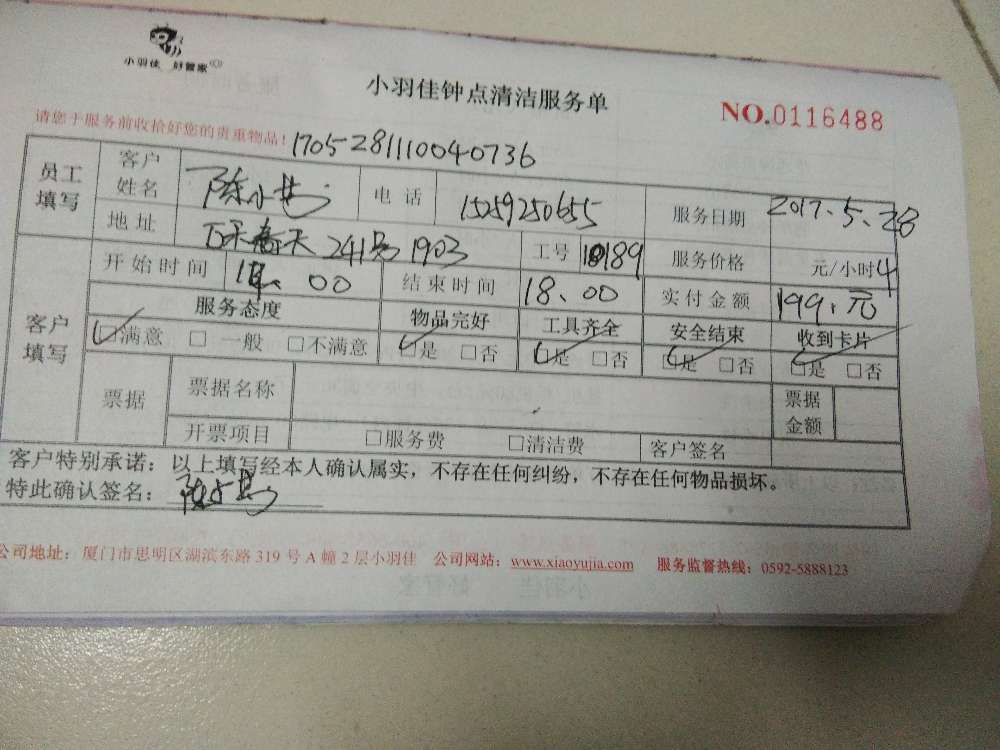 小羽佳 好管家
小羽佳钟点清洁服务单
NO.0116488
请您于服务前收拾好您的贵重物品!
17052811110040736
员工填写 客户姓名 陈小 电话 15259250655 服务日期 2017.5.28
地址 春天241号1903 工号 189 服务价格 元/小时 4
开始时间 00 结束时间 18.00 实付金额 199.元
客户填写 服务态度 物品完好 工具齐全 安全结束 收到卡片
□满意 □一般 □不满意 □是 □否 □是 □否 □是 □否 □是 □否
票据 票据名称 票据金额
开票项目 □服务费 □清洁费 客户签名
客户特别承诺:以上填写经本人确认属实,不存在任何纠纷,不存在任何物品损坏。
特此确认签名:
公司地址:厦门市思明区湖滨东路319号A幢2层小羽佳 公司网站:www.xiaoyujia.com 服务监督热线:0592-5888123